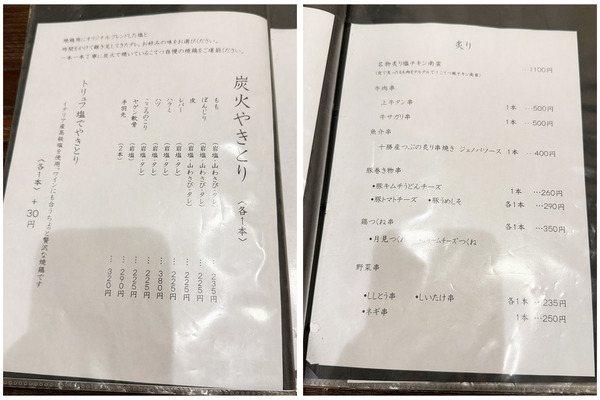 炭火やきとり 〈各1本〉
もも （岩塩・山わさび・タレ） … 235円
ぼんじり （岩塩・山わさび・タレ） … 225円
皮 （岩塩・山わさび・タレ） … 225円
レバー （岩塩・タレ） … 225円
ハラミ （岩塩・タレ） … 380円
ハツ （岩塩・タレ） … 225円
（岩塩・タレ） … 225円
ヤゲン軟骨 （岩塩） … 290円
手羽先 （2本） … 320円
トリュフ塩でやきとり 〈各1本〉 + 30円
イタリア産高級塩を使用。ワインにも合うちょっと贅沢な焼鶏です
焼鶏用にオリジナルブレンドした塩と
時間をかけて継ぎ足してきたタレ、お好みの味をお選びください。
一本一本丁寧に炭火で焼いているこてつ自慢の焼鶏をご堪能ください。
炙り
名物炙り塩チキン南蛮 …1100円
牛肉串
上牛タン串 1本 …500円
牛サガリ串 1本 …500円
魚介串
十勝産つぶの炙り串焼き ジェノバソース 1本 …400円
豚巻き物串
•豚キムチうどんチーズ 1本 …260円
•豚トマトチーズ •豚うめしそ 各1本 …290円
鶏つくね串
•月見つくね チーズつくね 各1本 …350円
野菜串
•ししとう串 •しいたけ串 各1本 …235円
•ネギ串 1本 …250円